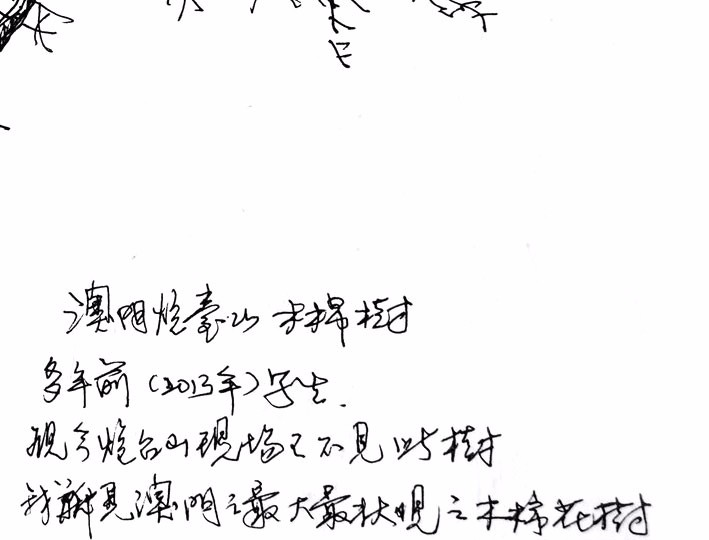 澳門炮臺山木棉樹
多年前(2013年)写生.
現今炮台山現場已不見此樹
我所見澳門之最大最壯观之木棉花樹